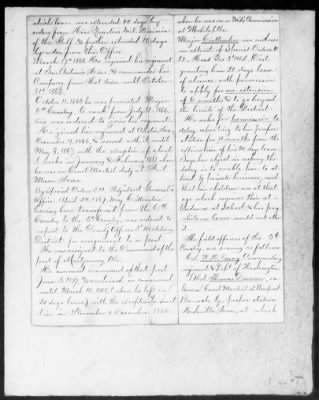 which leave was extended 20 days by
orders from Head Quarters Mil. Division
of the Gulf & further extended 15 days
by orders from this Office.
March 17th 1866. He rejoined his regiment
at San Antonio Texas & commanded his
Company from that time until October
31st 1866.
October 11, 1866 he was promoted Major
5th Cavalry, to rank from July 28, 1866,
& was ordered to join his regiment.
He joined his regiment at
December 9, 1866, & served with it until
May 3, 1867, with the exception of about
2 weeks in January & February 1867 when
he was on Court Martial duty at Fort
Mason Texas.
By Special Orders 211 Adjutant General's
Office April 22, 1867 Maj Crittenden
having been transferred from the 5th
Cavalry to the 6th Cavalry was ordered to
report to the Comdg Officer 3d Military
District for assignment to a post.
He was assigned to the Command of the
post of Montgomery Ala.
He assumed command of that post
June 3, 1867 & continued in command
until March 14, 1868 (when he left on
30 days leave) with the exception of short
time in November & December 1867
when he was on a Mil'y Commission
at Mobile Ala.
Major Crittenden was ordered
an extract of Special Orders No
53, Head Qrs 3d Mil. Dist.
granting him 30 days leave
of absence, with permission
to apply for an extension
of 6 months & to go beyond
the limits of the District.
He asks for permission to
delay reporting to his proper
station for 11 months from the
expiration of his 30 days leave
Says his object in asking the
delay is to enable him to at-
tend to private business, and
that his children are at that
age which requires their at-
tendance at School & his pres-
The field officers of the 5th
Cavalry are serving as follows:
Col. W. H. Emory Commanding
Regiment & Dist. of Washington
Lt. Col. Thomas Duncan, on
General Court Martial at
Nashville Tenn, at which